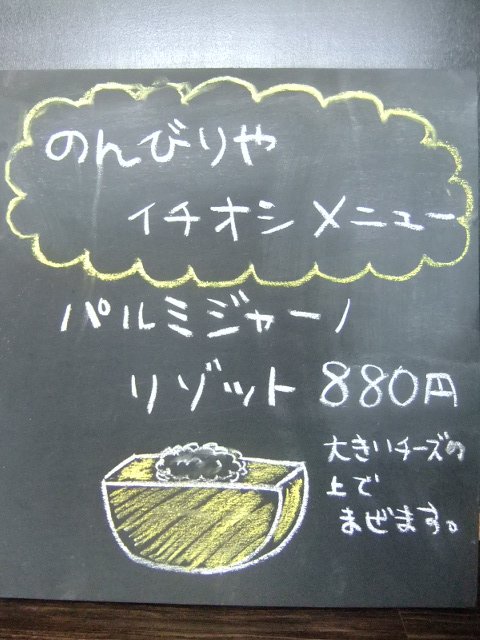 のんびりや
イチオシメニュー
パルミジャーノ
リゾット 880円
大きいチーズの
上で
まぜます。